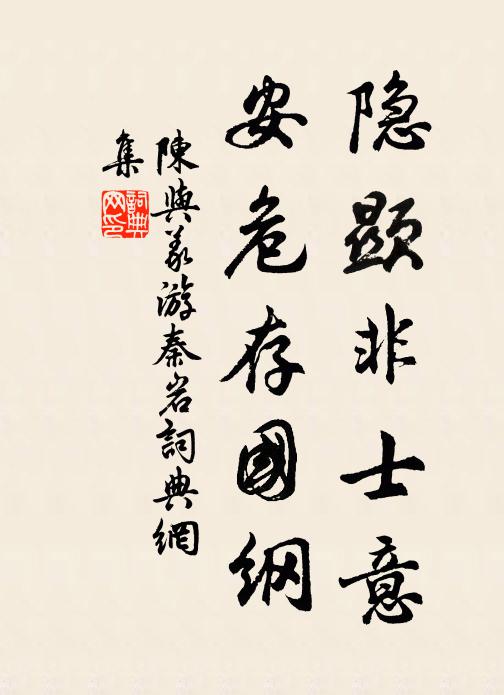 隐顯非士意
安危存國纲
陳與義游秦岩詞典網
集
詞典
网印